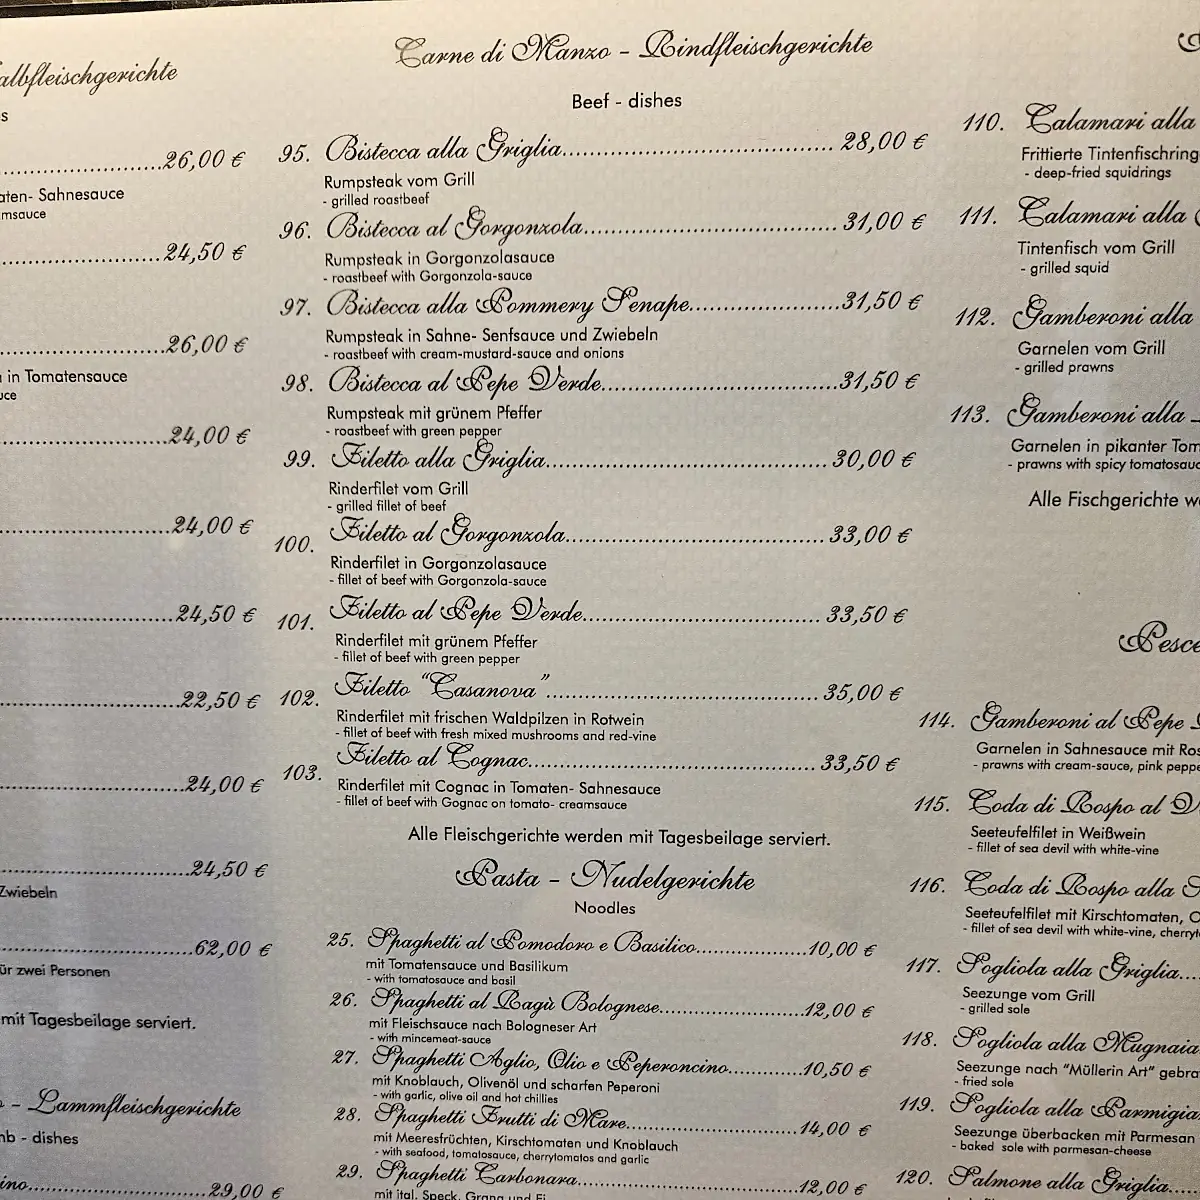 albfleischgerichte
s
26,00 €
aten- Sahnesauce
msauce
24,50 €
26,00 €
in Tomatensauce
uce
24,00 €
24,00 €
24,50 €
22,50 €
24,00 €
24,50 €
Zwiebeln
62,00 €
ür zwei Personen
mit Tagesbeilage serviert.
- Lammfleischgerichte
mb - dishes
ino 29,00 €
Carne di Manzo - Rindfleischgerichte
Beef - dishes
95. Bistecca alla Griglia 28,00 €
Rumpsteak vom Grill
- grilled roastbeef
96. Bistecca al Gorgonzola 31,00 €
Rumpsteak in Gorgonzolasauce
- roastbeef with Gorgonzola-sauce
97. Bistecca alla Pommery Senape 31,50 €
Rumpsteak in Sahne- Senfsauce und Zwiebeln
- roastbeef with cream-mustard-sauce and onions
98. Bistecca al Pepe Verde 31,50 €
Rumpsteak mit grünem Pfeffer
- roastbeef with green pepper
99. Filetto alla Griglia 30,00 €
Rinderfilet vom Grill
- grilled fillet of beef
100. Filetto al Gorgonzola 33,00 €
Rinderfilet in Gorgonzolasauce
- fillet of beef with Gorgonzola-sauce
101. Filetto al Pepe Verde 33,50 €
Rinderfilet mit grünem Pfeffer
- fillet of beef with green pepper
102. Filetto "Casanova" 35,00 €
Rinderfilet mit frischen Waldpilzen in Rotwein
- fillet of beef with fresh mixed mushrooms and red-vine
103. Filetto al Cognac 33,50 €
Rinderfilet mit Cognac in Tomaten- Sahnesauce
- fillet of beef with Gognac on tomato- creamsauce
Alle Fleischgerichte werden mit Tagesbeilage serviert.
Pasta - Nudelgerichte
Noodles
25. Spaghetti al Pomodoro e Basilico 10,00 €
mit Tomatensauce und Basilikum
- with tomatosauce and basil
26. Spaghetti al Ragù Bolognese 12,00 €
mit Fleischsauce nach Bologneser Art
- with mincemeat-sauce
27. Spaghetti Aglio, Olio e Peperoncino 10,50 €
mit Knoblauch, Olivenöl und scharfen Peperoni
- with garlic, olive oil and hot chillies
28. Spaghetti Frutti di Mare 14,00 €
mit Meeresfrüchten, Kirschtomaten und Knoblauch
- with seafood, tomatosauce, cherrytomatos and garlic
29. Spaghetti Carbonara 12,00 €
mit ital. Speck, Grana und Ei
110. Calamari alla
Frittierte Tintenfischring
- deep-fried squidrings
111. Calamari alla
Tintenfisch vom Grill
- grilled squid
112. Gamberoni alla
Garnelen vom Grill
- grilled prawns
113. Gamberoni alla
Garnelen in pikanter Tom
- prawns with spicy tomatosauc
Alle Fischgerichte we
Pesce
114. Gamberoni al Pepe
Garnelen in Sahnesauce mit Ros
- prawns with cream-sauce, pink peppe
115. Coda di Rospo al V
Seeteufelfilet in Weißwein
- fillet of sea devil with white-vine
116. Coda di Rospo alla
Seeteufelfilet mit Kirschtomaten, O
- fillet of sea devil with white-vine, cherryto
117. Sogliola alla Griglia
Seezunge vom Grill
- grilled sole
118. Sogliola alla Mugnaia
Seezunge nach "Müllerin Art" gebra
- fried sole
119. Sogliola alla Parmigia
Seezunge überbacken mit Parmesan
- baked sole with parmesan-cheese
120. Salmone alla Griglia